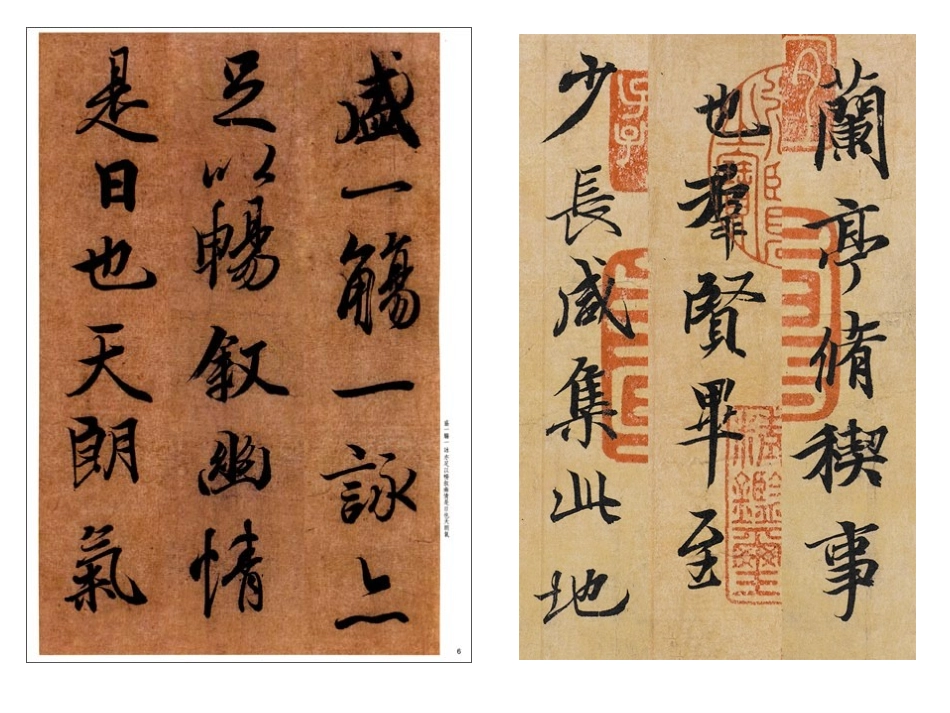 盛一觴一詠亦
足以暢叙幽情
是日也天朗氣
盛一觴一詠亦足以暢叙幽情是日也天朗氣
6
蘭亭脩稧事
也羣賢畢至
少長咸集此地